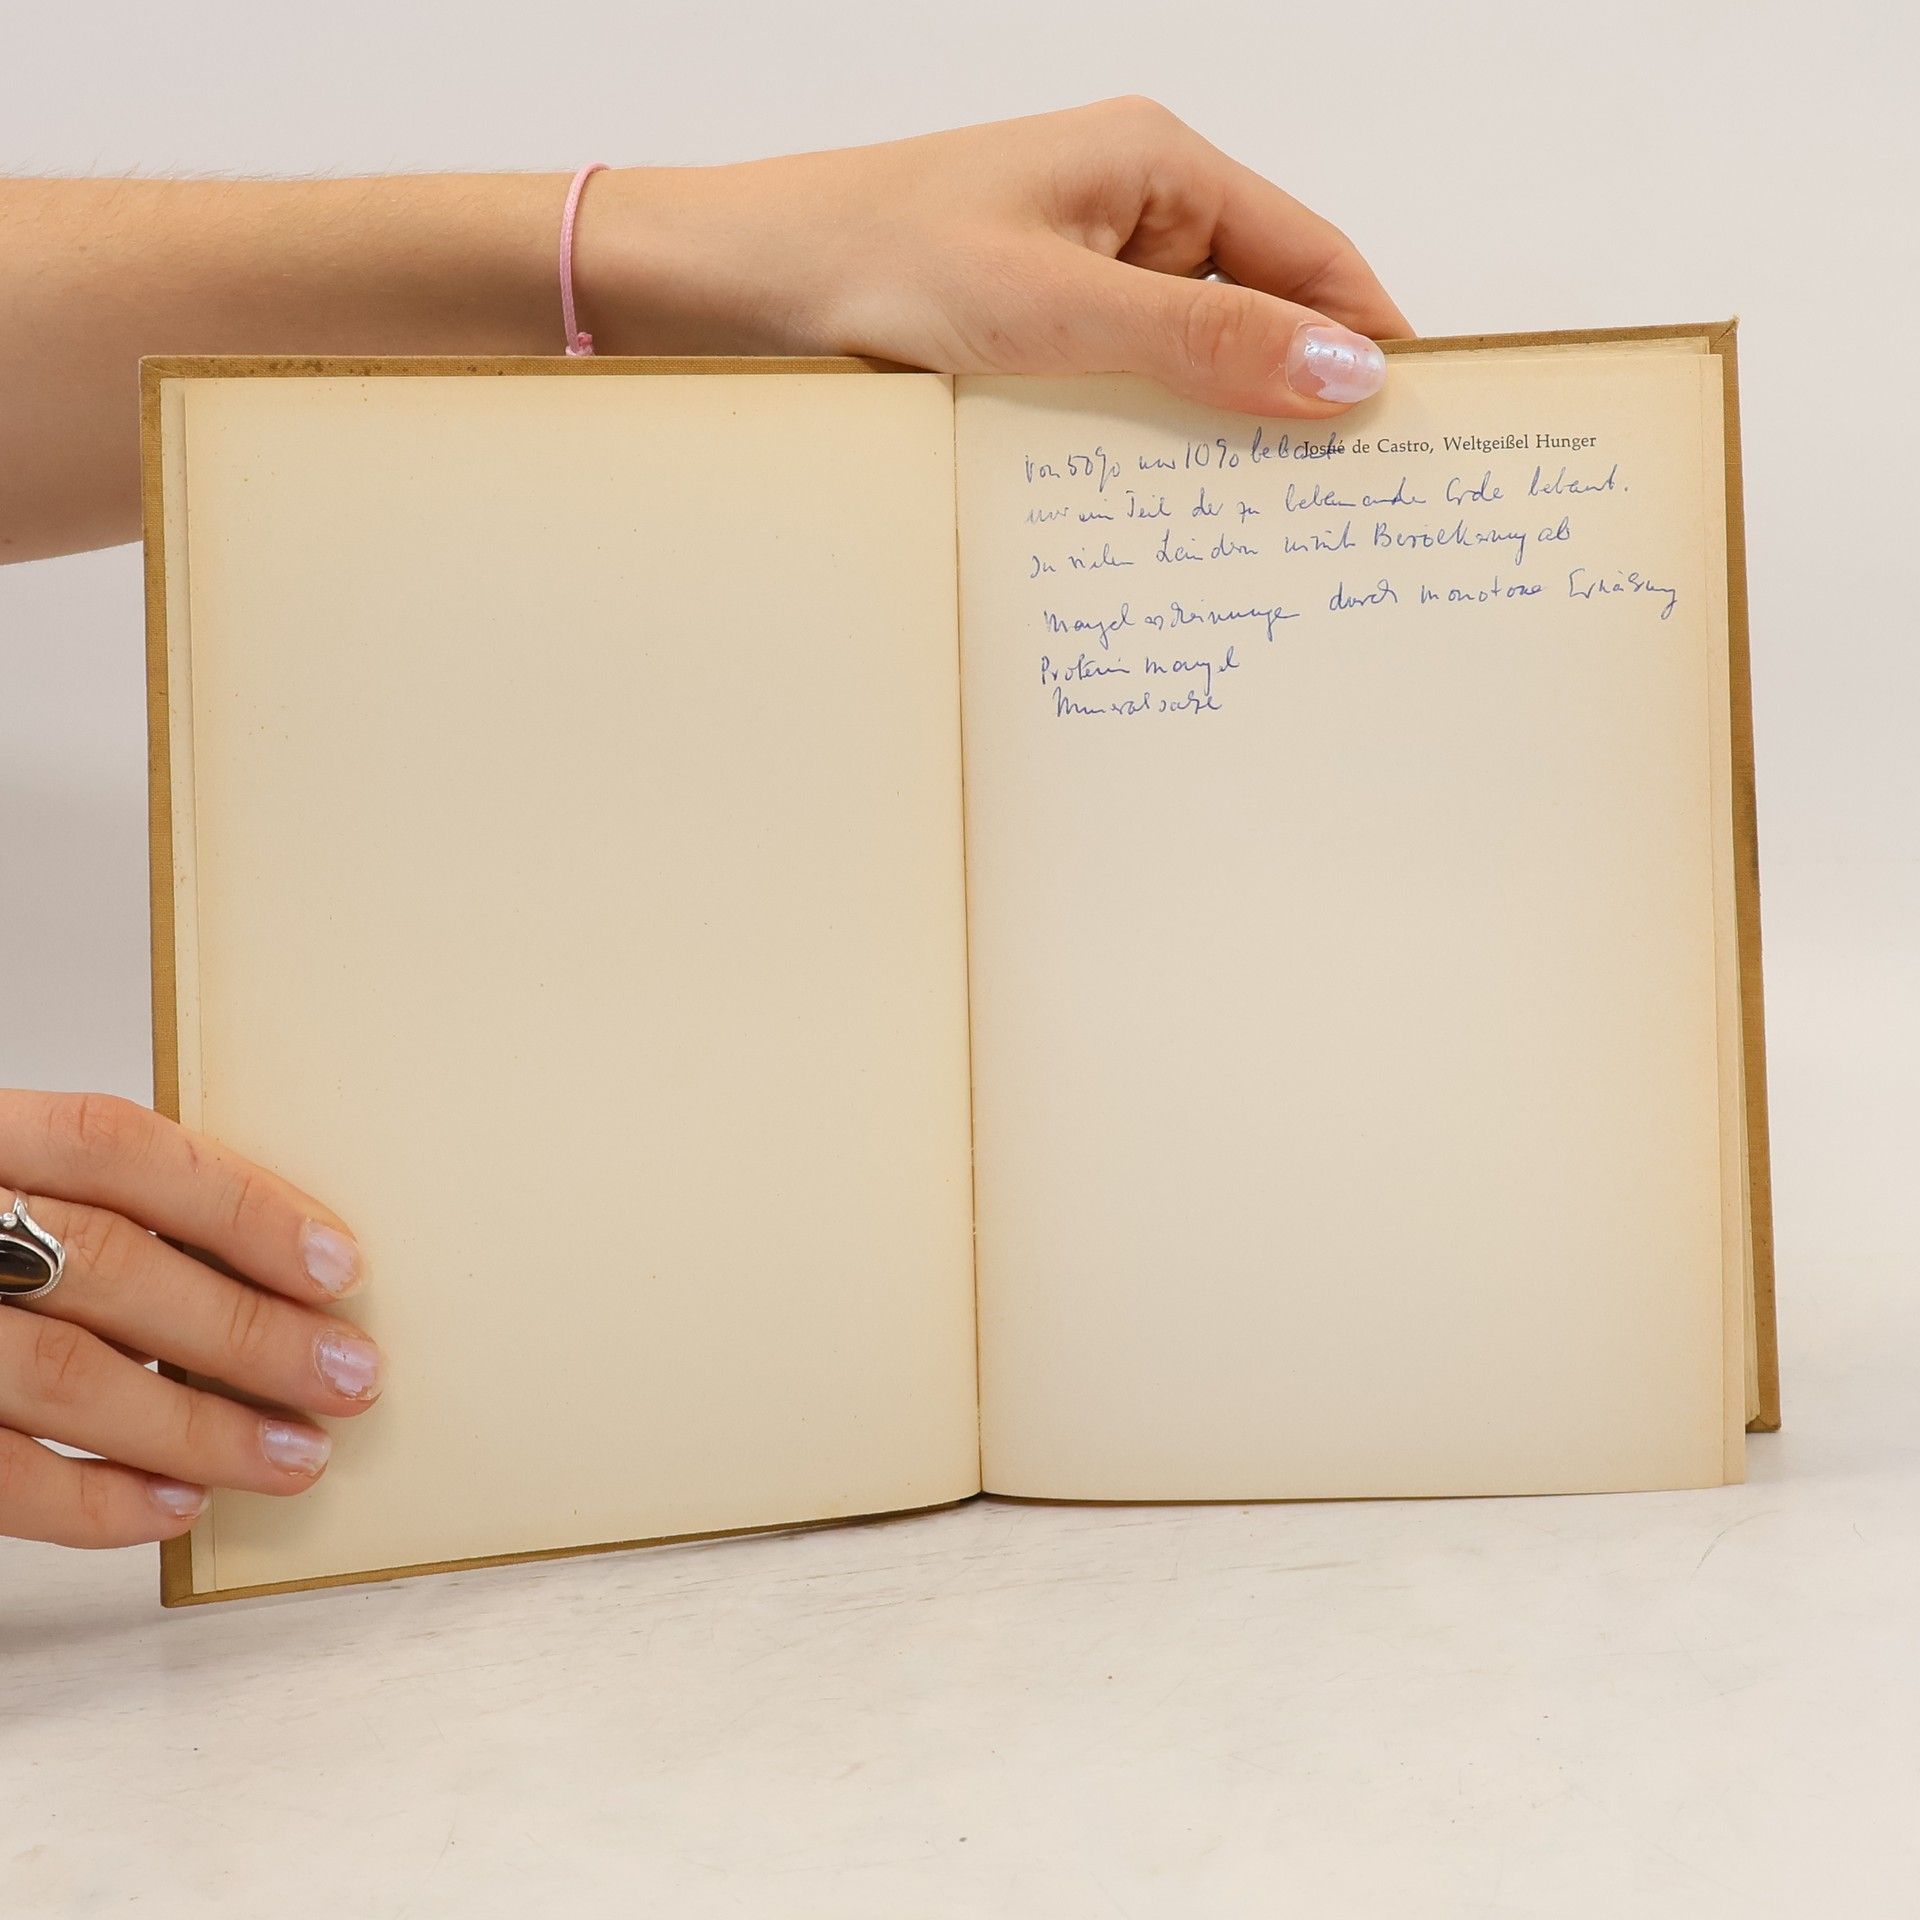 Josué de Castro, Weltgeißel Hunger
von 50% nur 10% bebaut
nur ein Teil der zu bebauenden Erde bebaut.
In vielen Ländern nimmt Bevölkerung ab
Mangelerscheinungen durch monotone Ernährung
Protein mangel
Mineralsalze